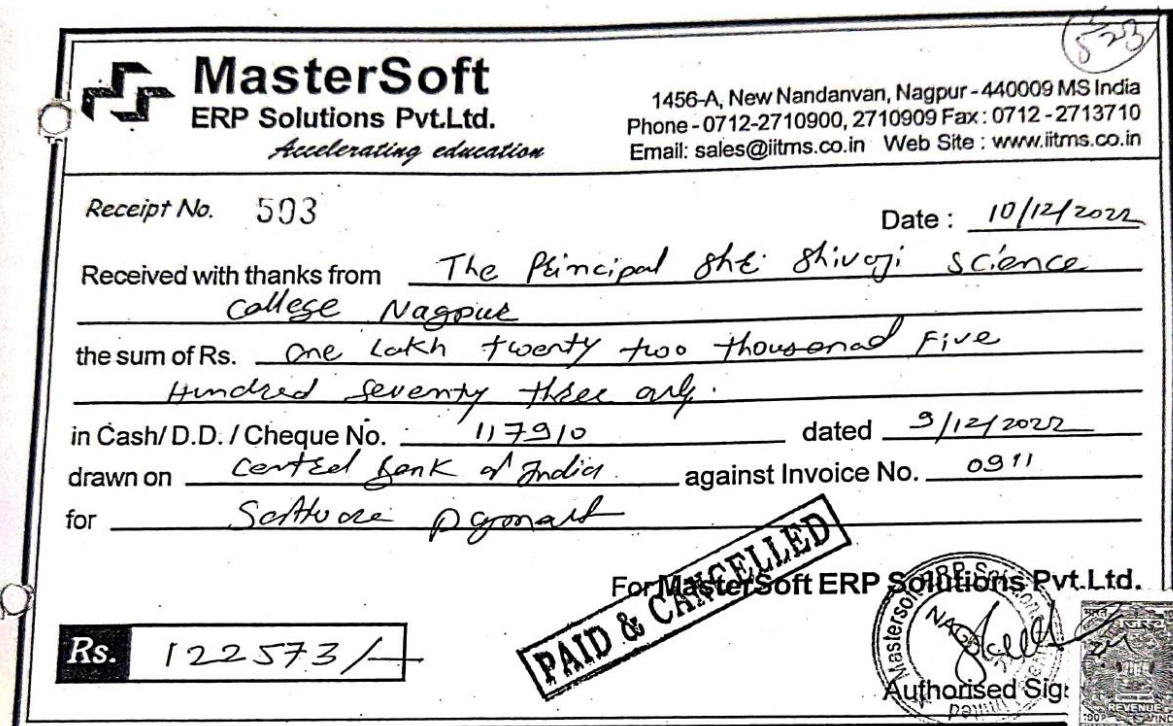 523
MasterSoft
ERP Solutions Pvt.Ltd.
Accelerating education
1456-A, New Nandanvan, Nagpur - 440009 MS India
Phone - 0712-2710900, 2710909 Fax : 0712 - 2713710
Email: sales@iitms.co.in Web Site : www.iitms.co.in
Receipt No. 503
Date : 10/12/2022
Received with thanks from The Principal Shri Shivaji Science
College Nagpur
the sum of Rs. One Lakh twenty two thousand Five
Hundred Seventy three only.
in Cash/ D.D. / Cheque No. 117910 dated 9/12/2022
drawn on Central Bank of India against Invoice No. 0911
for Software payment
PAID & CANCELLED
For MasterSoft ERP Solutions Pvt.Ltd.
Mastersoft ERP Solutions
NAGPUR
Limited
Rs. 122573/-
Authorised Sig
भारत
REVENUE